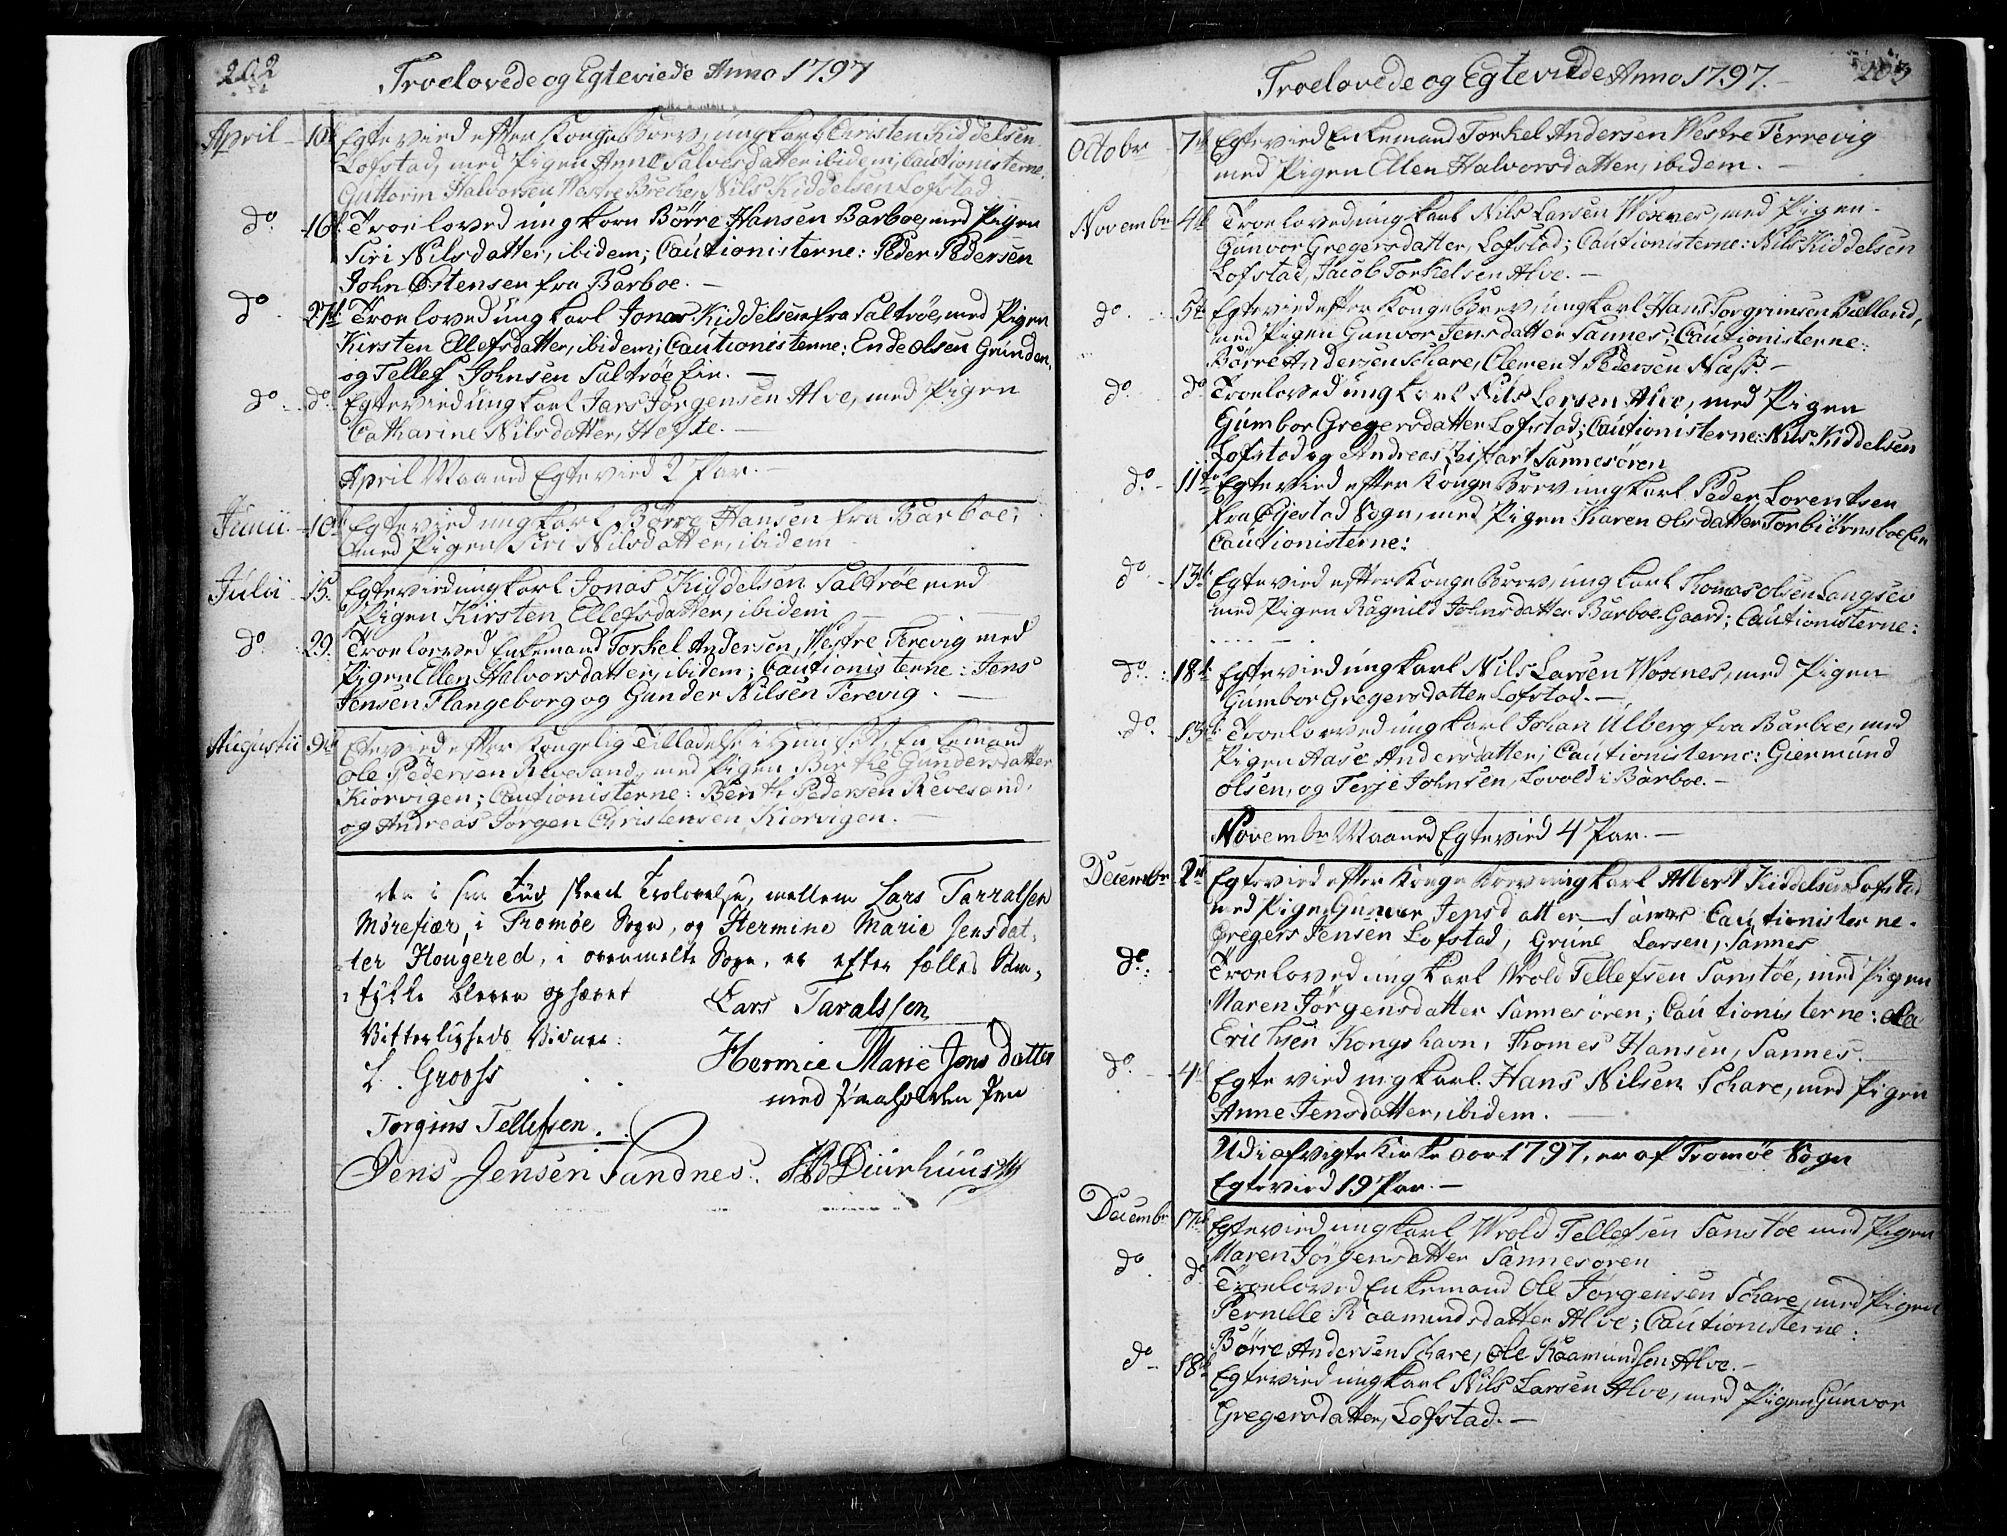 202
Troelovede og Egteviede Anno 1797
April 10de Egtevied efter Konge Brev, ungkarl Christen Kiddelsen
Lofstad, med Pigen Anne Salvesdatter ibidem, Cautionisterne
Guttorm Halvorsen Westre Brekke, Nils Kiddelsen Lofstad
do. 16de Troeloved ungkarn Börre Hansen Barboe, med Pigen
Siri Nilsdatter, ibidem; Cautionisterne: Peder Pedersen
John Ostensen fra Barboe. –
do 27de Troeloved ungkarl Jonas Kiddelsen fra Saltröe, med Pigen
Kirsten Ellefsdatter, ibidem; Cautionisterne: Ende olsen Grunden,
og Tellef Johnsen Saltröe Eie. –
do. do. Egtevied ungkarl Lars Jörgensen Alve, med Pigen
Catharine Nilsdatter, Hofte. –
April Maaned Egtevied 2 Par. –
Junii 10de Egteviedungkarl Börre Hansen fra Barboe,
med Pigen Siri Nilsdatter, ibidem
Julii 15. Egteviedungkarl Jonas Kiddelsen Saltröe, med
Pigen Kirsten Ellefsdatter, ibidem
do. 29. Troeloved Enkemand Torkel Andersen, Westre Terevig med
Pigen Ellen Halvorsdatter, ibidem; Cautionisterne: Jens
Jensen Flangeborg og Gunder Nilsen Terevig. –
Augustii 9de Egteviedefter Kongelig Tilladelse i Huuset, Enkemand
Ole Pedersen Revesand, med Pigen Birthe Gundersdatter
Kiorvigen; Cautionisterne: Benth Pedersen Revesand,
og Andreas Jorgen Christensen Kiorvigen. –
Den i sin Tiid skeed Trolovelse, mellem Lars Tarralsen
Mörefiær, i Tromöe Sogn, og Hermine Marie Jensdat-
ter Hougered, i ovenmelte Sogn, er efter fælles Sam-
tykke bleven ophævet Lars Taralssen
Vitterligheds Vidner:
Hermie Marie Jens datter
L. Grooss
med paaholden Pen
Torgius Tellefsen.
Jens Jensen Sandnes. HB Duurhuus
203
Troelovede og Egteviede Anno 1797. –
Octobr 7de Egteviedenkemand Torkel Andersen Westre Terrevig
med Pigen Ellen Halvorsdatter, ibidem. –
Novembr 4de Troelovedungkarl Nils Larsen Woxnes, med Pigen
Gunvor Gregersdatter, Lofstad; Cautionisterne: Nils Kiddelsen
Lofstad, Jacob Torkelsen Alve. –
do. 5te Egteviedefter Konge Brev, ungkarl Hans Torgrimsen Bielland,
med Pigen Gunvor Jensdatter Sannes; Cautionisterne:
Börre Andersen Schare, Clement Pedersen Næss. –
do. do Troeloved ungkarl Nils Larsen Alve, med Pigen
Gumbor Gregersdatter Lofstad; Cautionisterne: Nils Kiddelsen
Lofstad og Andreas Sannesören
do. 11te Egteviedefter Konge Brev ungkarl Peder Lorentsen
fra Öjestad Sogn, med Pigen Karen olsdatter Torbiörnsboe Eie
Cautionisterne:
do. 13de Egteviedefter Konge Brev, ungkarl Thomas olsen Langsev
med Pigen Ragnild Johnsdatter Barboe Gaard; Cautionisterne:
do. 18de Egteviedungkarl Nils Larsen Woxnes, med Pigen
Gumbor Gregersdatter Lofstad. –
do. 15de Troelovedungkarl Johan Ulberg fra Barboe, med
Pigen Aase Andersdatter; Cautionisterne: Giermund
olsen, og Terje Johnsen, Lovold i Barboe. –
Novembr Maaned Egtevied 4 Par. –
Decembr 2de Egteviedefter Konge Brev ungkarl Albert Kiddelsen Lofstad
med Pigen Gunvor Jensdatter Sannes Cautionisterne.
Gregers Jensen Lofstad, Grunl Larsen, Sannes
do: Troelovedungkarl Wrold Tellefsen Sanstöe, med Pigen
Maren Jörgensdatter Sannesören; Cautionisterne: Ola
Erichsen Kongshavn, Thomes Hansen, Sannes.
do. 4de Egteviedungkarl Hans Nilsen Schare, med Pigen
Anne Jensdatter, ibidem. –
Udi afvigte Kirke aar 1797, er af Tromöe Sogn
Egteviede 19 Par. –
Decembr 17de Egteviedungkarl Wrold Tellefsen Sanstöe med Pigen
Maren Jörgensdatter Sannesören
do. do Troeloved Enkemand Ole Jörgensen Schare, med Pigen
Pernille Raamundsdatter Alve; Cautionisterne:
Börre Andersen Schare, Ole Raamundsen Alve. –
do 18de Egteviedungkarl Nils Larsen Alve, med Pigen Gunvor
Gregersdatter, Lofstad. –